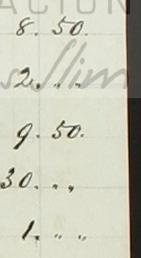 ACION
8. 50.
2. „ „
9. 50.
30. „ „
1. „ „